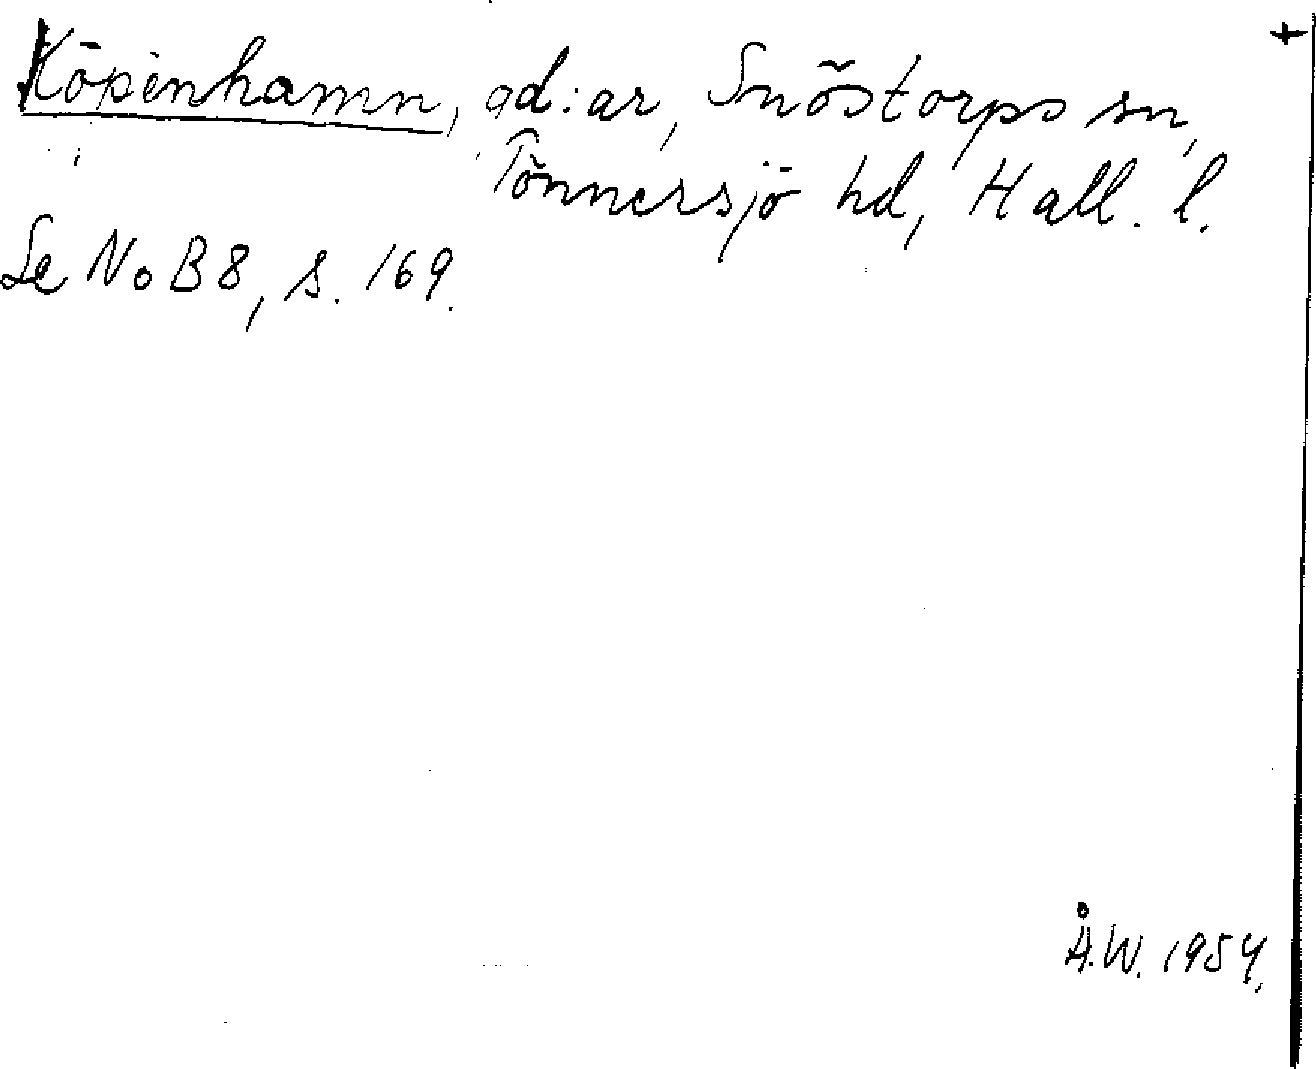 Köpenhamn, gd:ar, Snöstorps sn,
Tönnersjö hd, Hall. l.
Se NoB 8, s. 169.
Å.W. 1954.